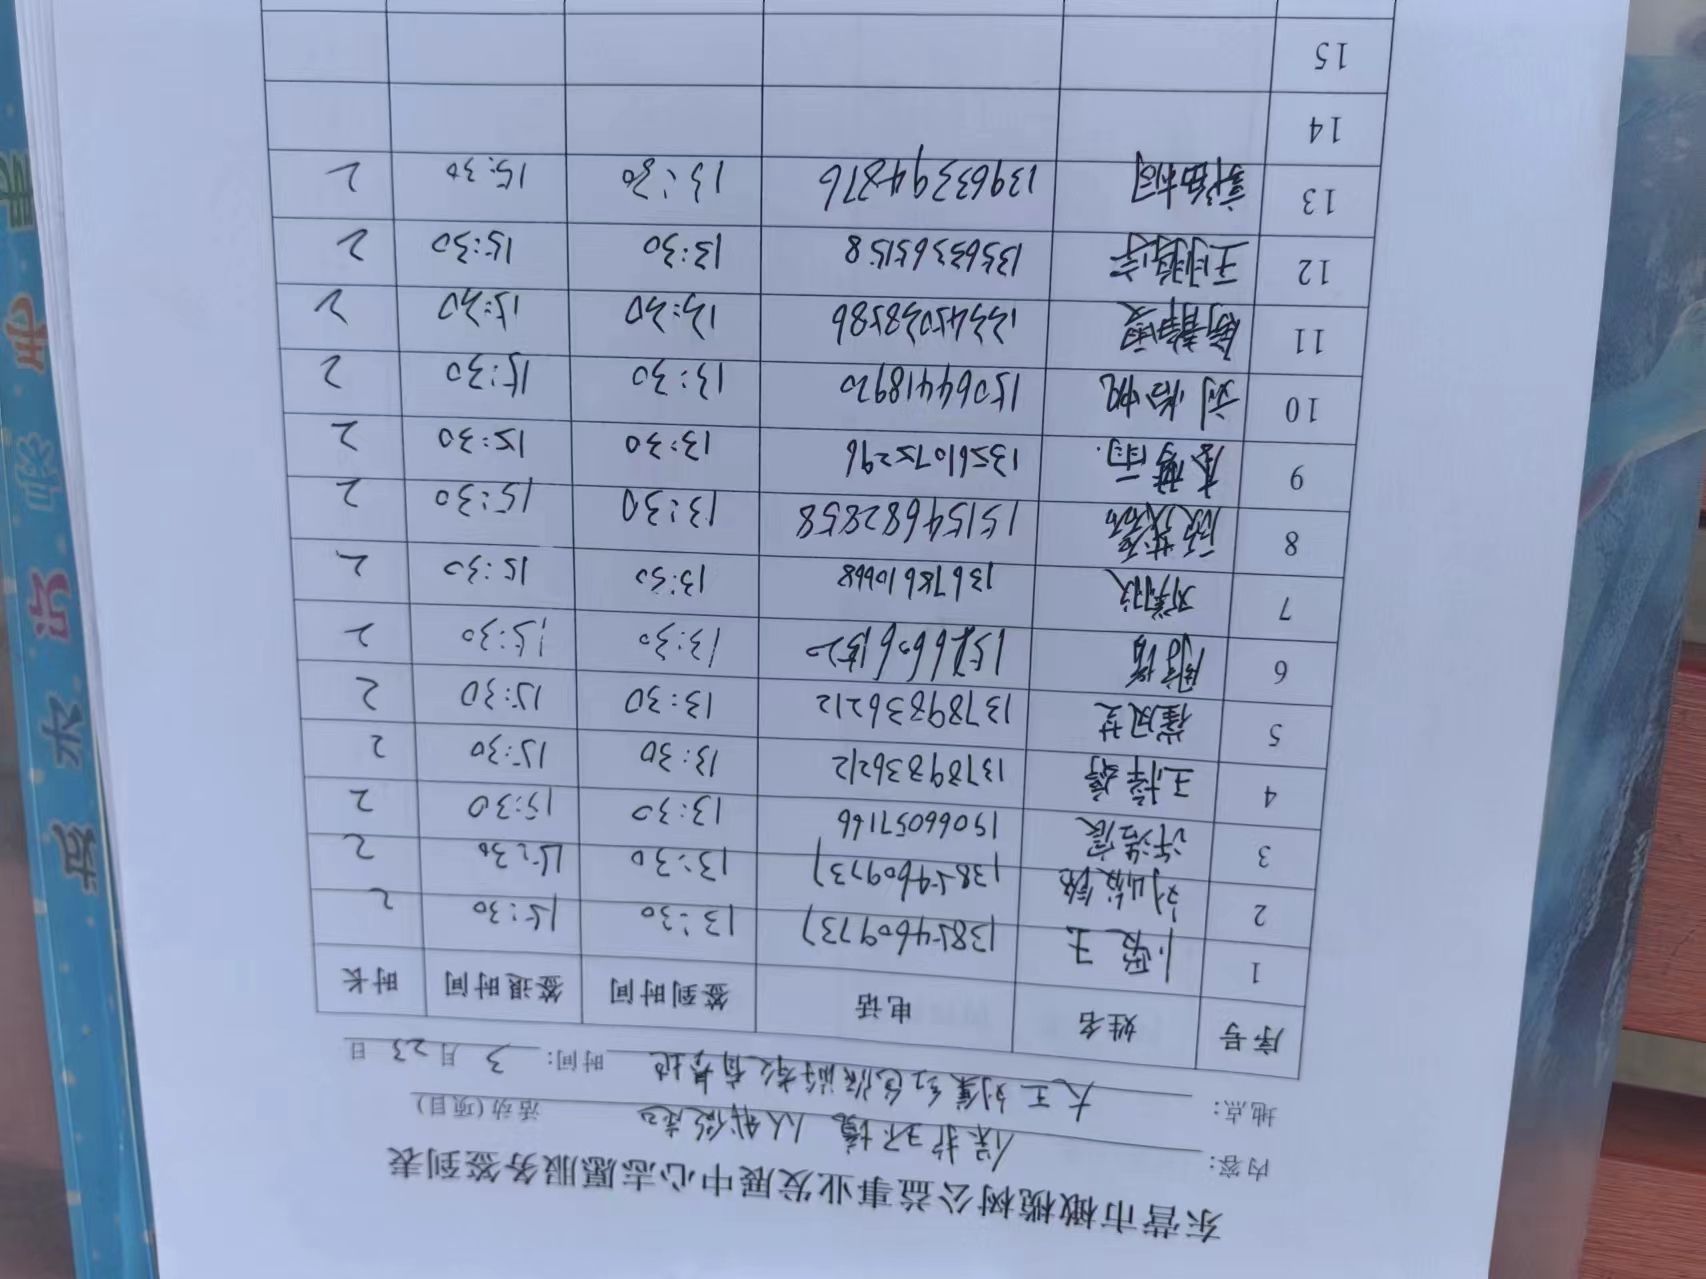 东营市橄榄树公益事业发展中心志愿服务签到表
内容: 保护环境 从我做起 活动(项目)
地点: 大王刘集红色旅游教育基地 时间: 3 月 23 日
序号 姓名 电话 签到时间 签退时间 时长
1 13854609737 13:30 15:30 2
2 13854609737 13:30 15:30 2
3 许浩宸 15066057166 13:30 15:30 2
4 王梓婷 13789836212 13:30 15:30 2
5 崔凤芝 13789836212 13:30 15:30 2
6 13:30 15:30 2
7 邓淑 13675610668 13:30 15:30 2
8 15154682858 13:30 15:30 2
9 13561075296 13:30 15:30 2
10 刘怡帆 15064418970 13:30 15:30 2
11 静雯 13345038586 13:30 15:30 2
12 王 13563365158 13:30 15:30 2
13 13963394876 13:30 15:30 2
14
15
战 水 识 娱 市